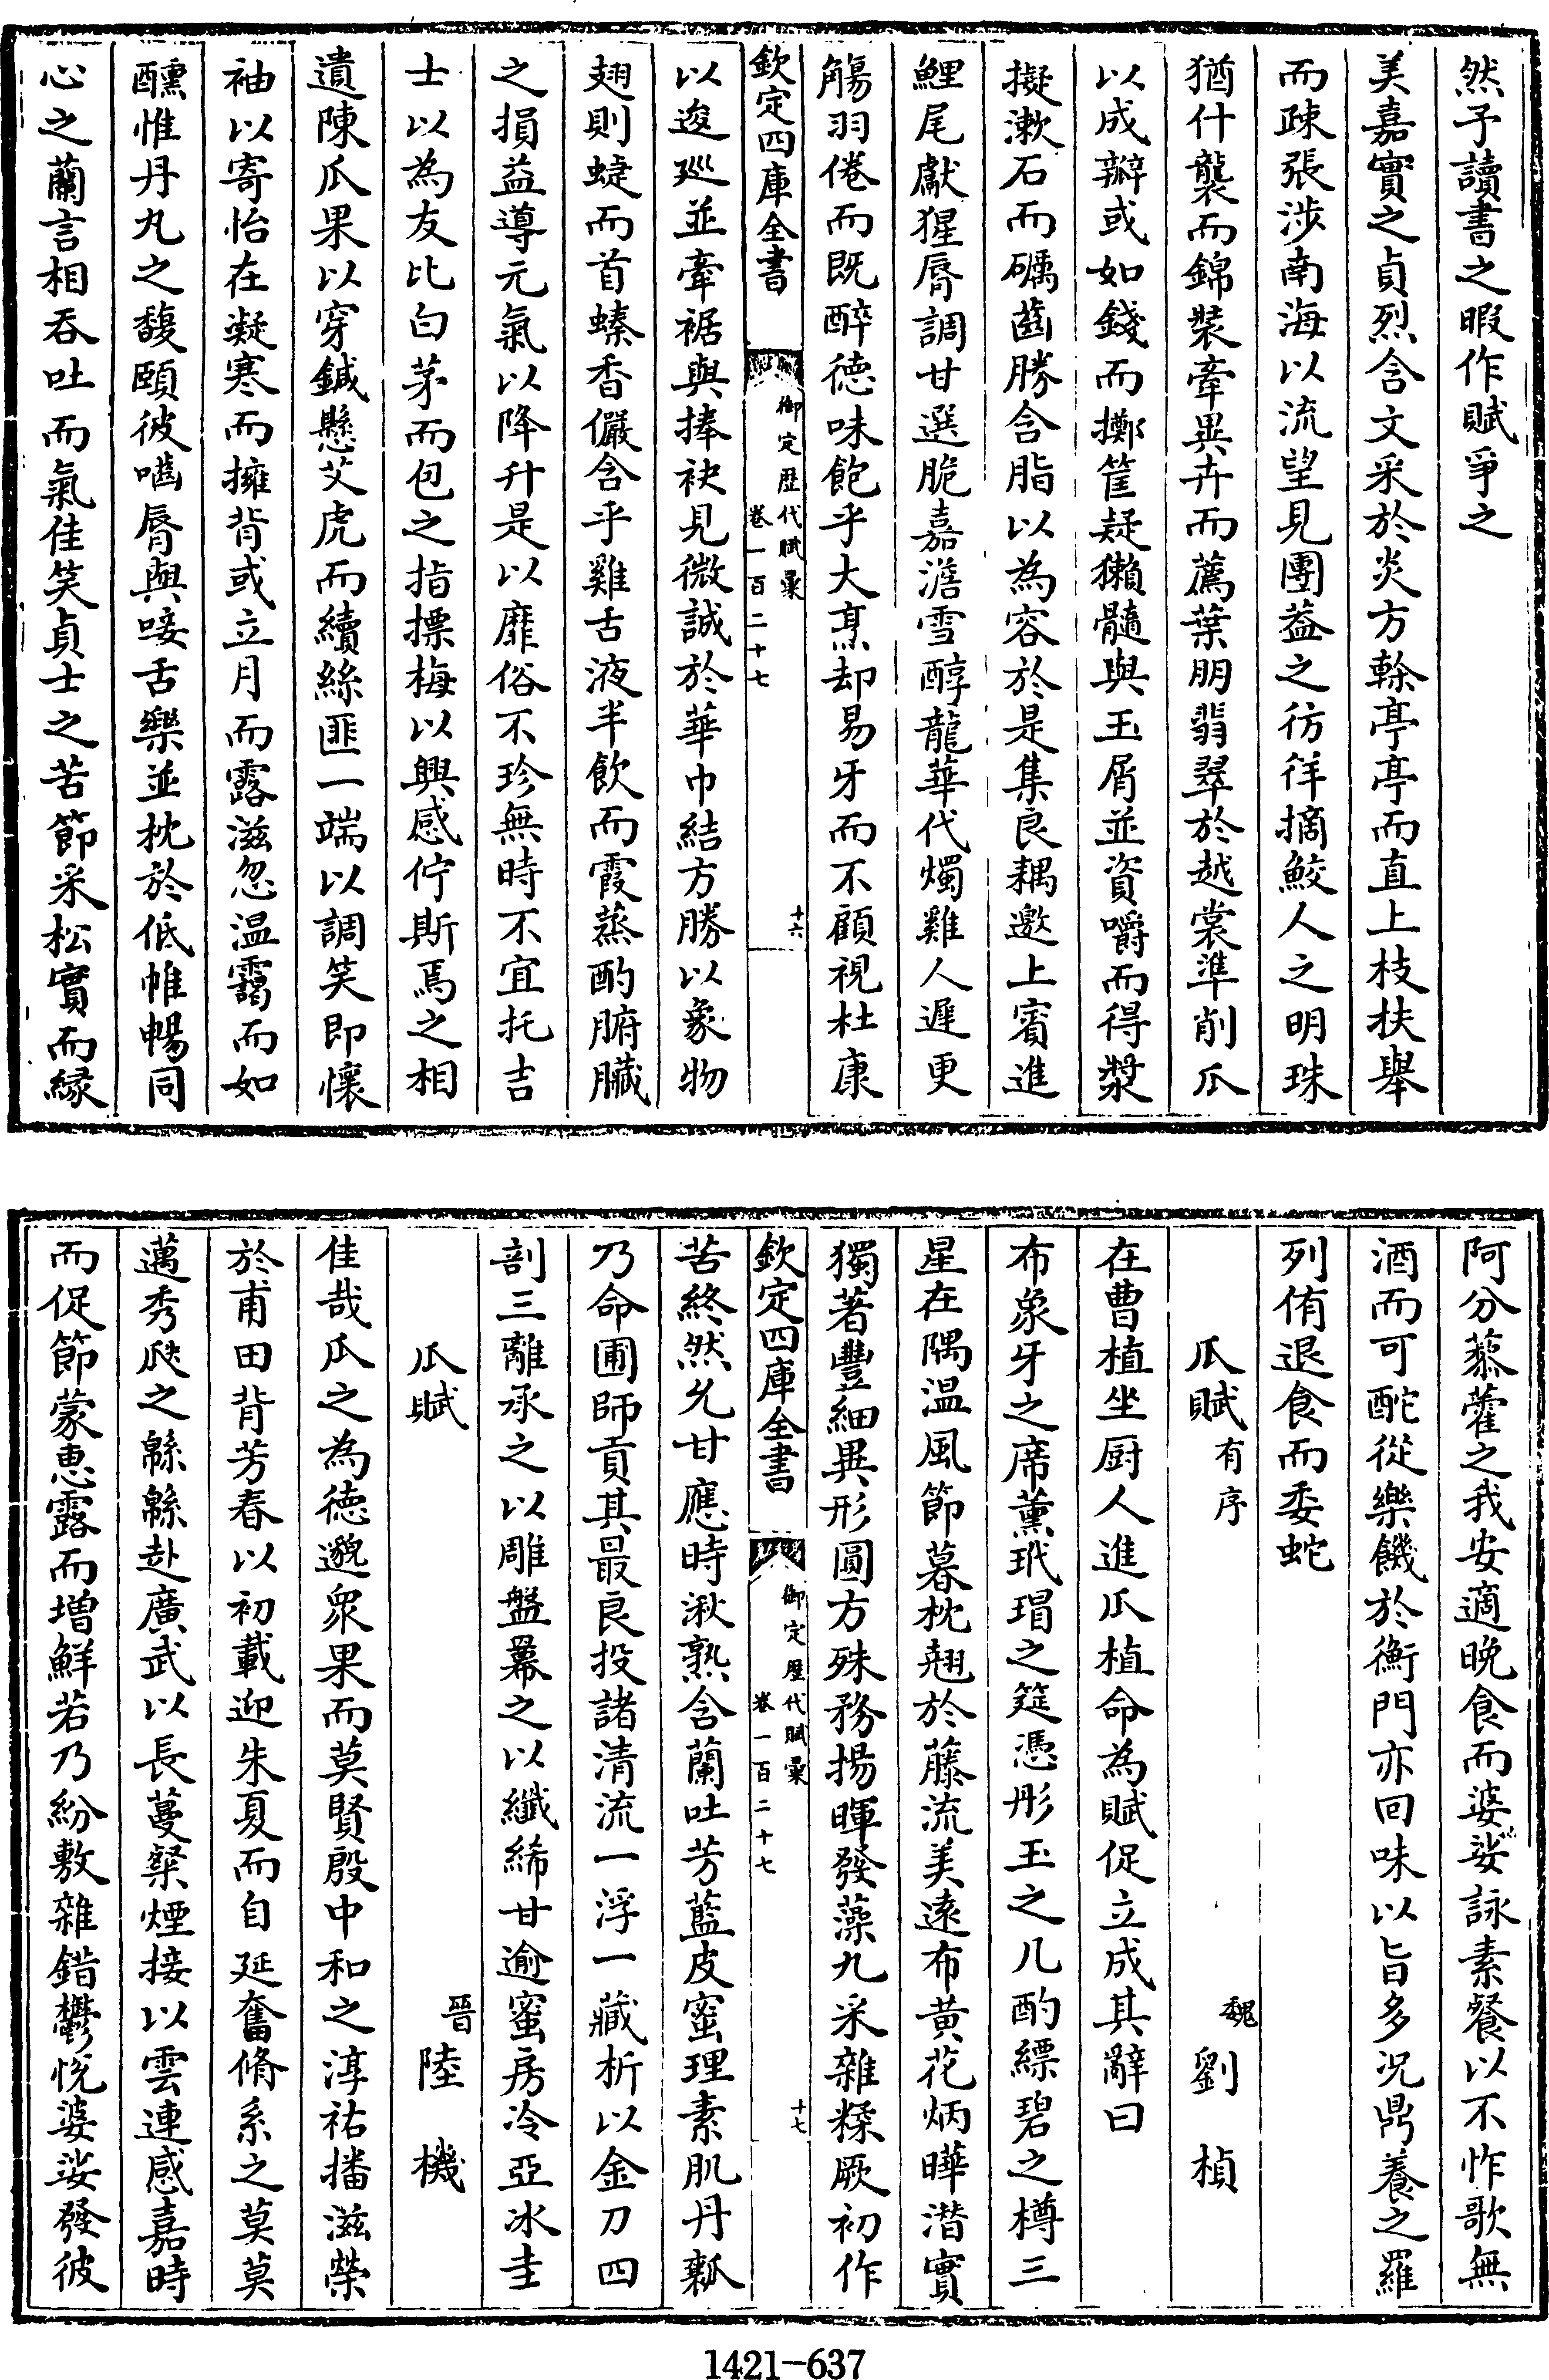 然予讀書之暇作賦爭之
美嘉實之貞烈含文采於炎方榦亭亭而直上枝扶舉
而疎張涉南海以流望見團葢之彷徉摘鮫人之明珠
猶什襲而錦裝牽異卉而薦葉朋翡翠於越裳準削瓜
以成辮或如錢而擲筐疑獺髓與玉屑並資嚼而得漿
擬漱石而礪齒勝含脂以為容於是集良耦邀上賓進
鯉尾獻猩脣調甘選脆嘉澹雪醇龍華代燭雞人遲更
觴羽倦而既醉德味飽乎大烹却易牙而不顧視杜康
欽定四庫全書
御定歷代賦彙
卷一百二十七
十六
以逡巡並牽裾與捧袂見微誠於華巾結方勝以象物
翅則蜨而首螓香儼含乎雞舌液半飲而霞蒸酌腑臟
之損益導元氣以降升是以靡俗不珍無時不宜托吉
士以為友比白茅而包之指摽梅以興感佇斯焉之相
遺陳瓜果以穿鍼懸艾虎而續絲匪一端以調笑即懷
袖以寄怡在凝寒而擁背或立月而露滋忽温靄而如
醺惟丹丸之馥頤彼噛脣與唼舌樂並枕於低帷暢同
心之蘭言相吞吐而氣佳笑貞士之苦節采松實而緣
阿分藜藿之我安適晚食而婆娑詠素餐以不怍歌無
酒而可酡從樂饑於衡門亦回味以旨多况鼎養之羅
列侑退食而委蛇
瓜賦有序
魏劉楨
在曹植坐厨人進瓜植命為賦促立成其辭曰
布象牙之席薰玳瑁之筵憑彤玉之几酌縹碧之樽三
星在隅温風節暮枕翘於藤流美遠布黄花炳曄潜實
獨著豐細異形圓方殊務揚暉發藻九采雜糅厥初作
欽定四庫全書
御定歷代賦彙
卷一百二十七
十七
苦終然允甘應時湫熟含蘭吐芳藍皮蜜理素肌丹瓤
乃命圃師貢其最良投諸清流一浮一藏析以金刀四
剖三離承之以雕盤羃之以纖絺甘逾蜜房冷亞冰圭
瓜賦
晉陸機
佳哉瓜之為德邈衆果而莫賢殷中和之淳祐播滋榮
於甫田背芳春以初載迎朱夏而自延奮脩系之莫莫
邁秀瓞之緜緜赴廣武以長蔓粲煙接以雲連感嘉時
而促節蒙惠露而增鮮若乃紛敷雜錯鬱悅婆娑發彼
1421-637